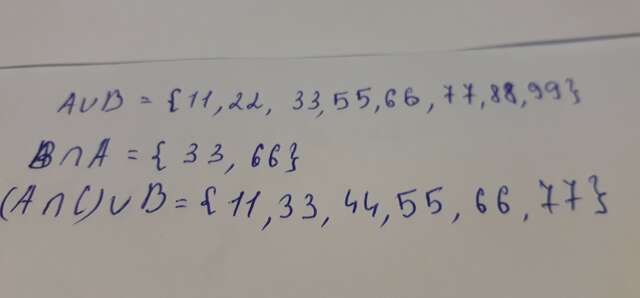 A∪B = {11,22, 33,55,66,77,88,99}
B∩A = { 33, 66}
(A∩C)∪B = {11,33,44,55,66,77}